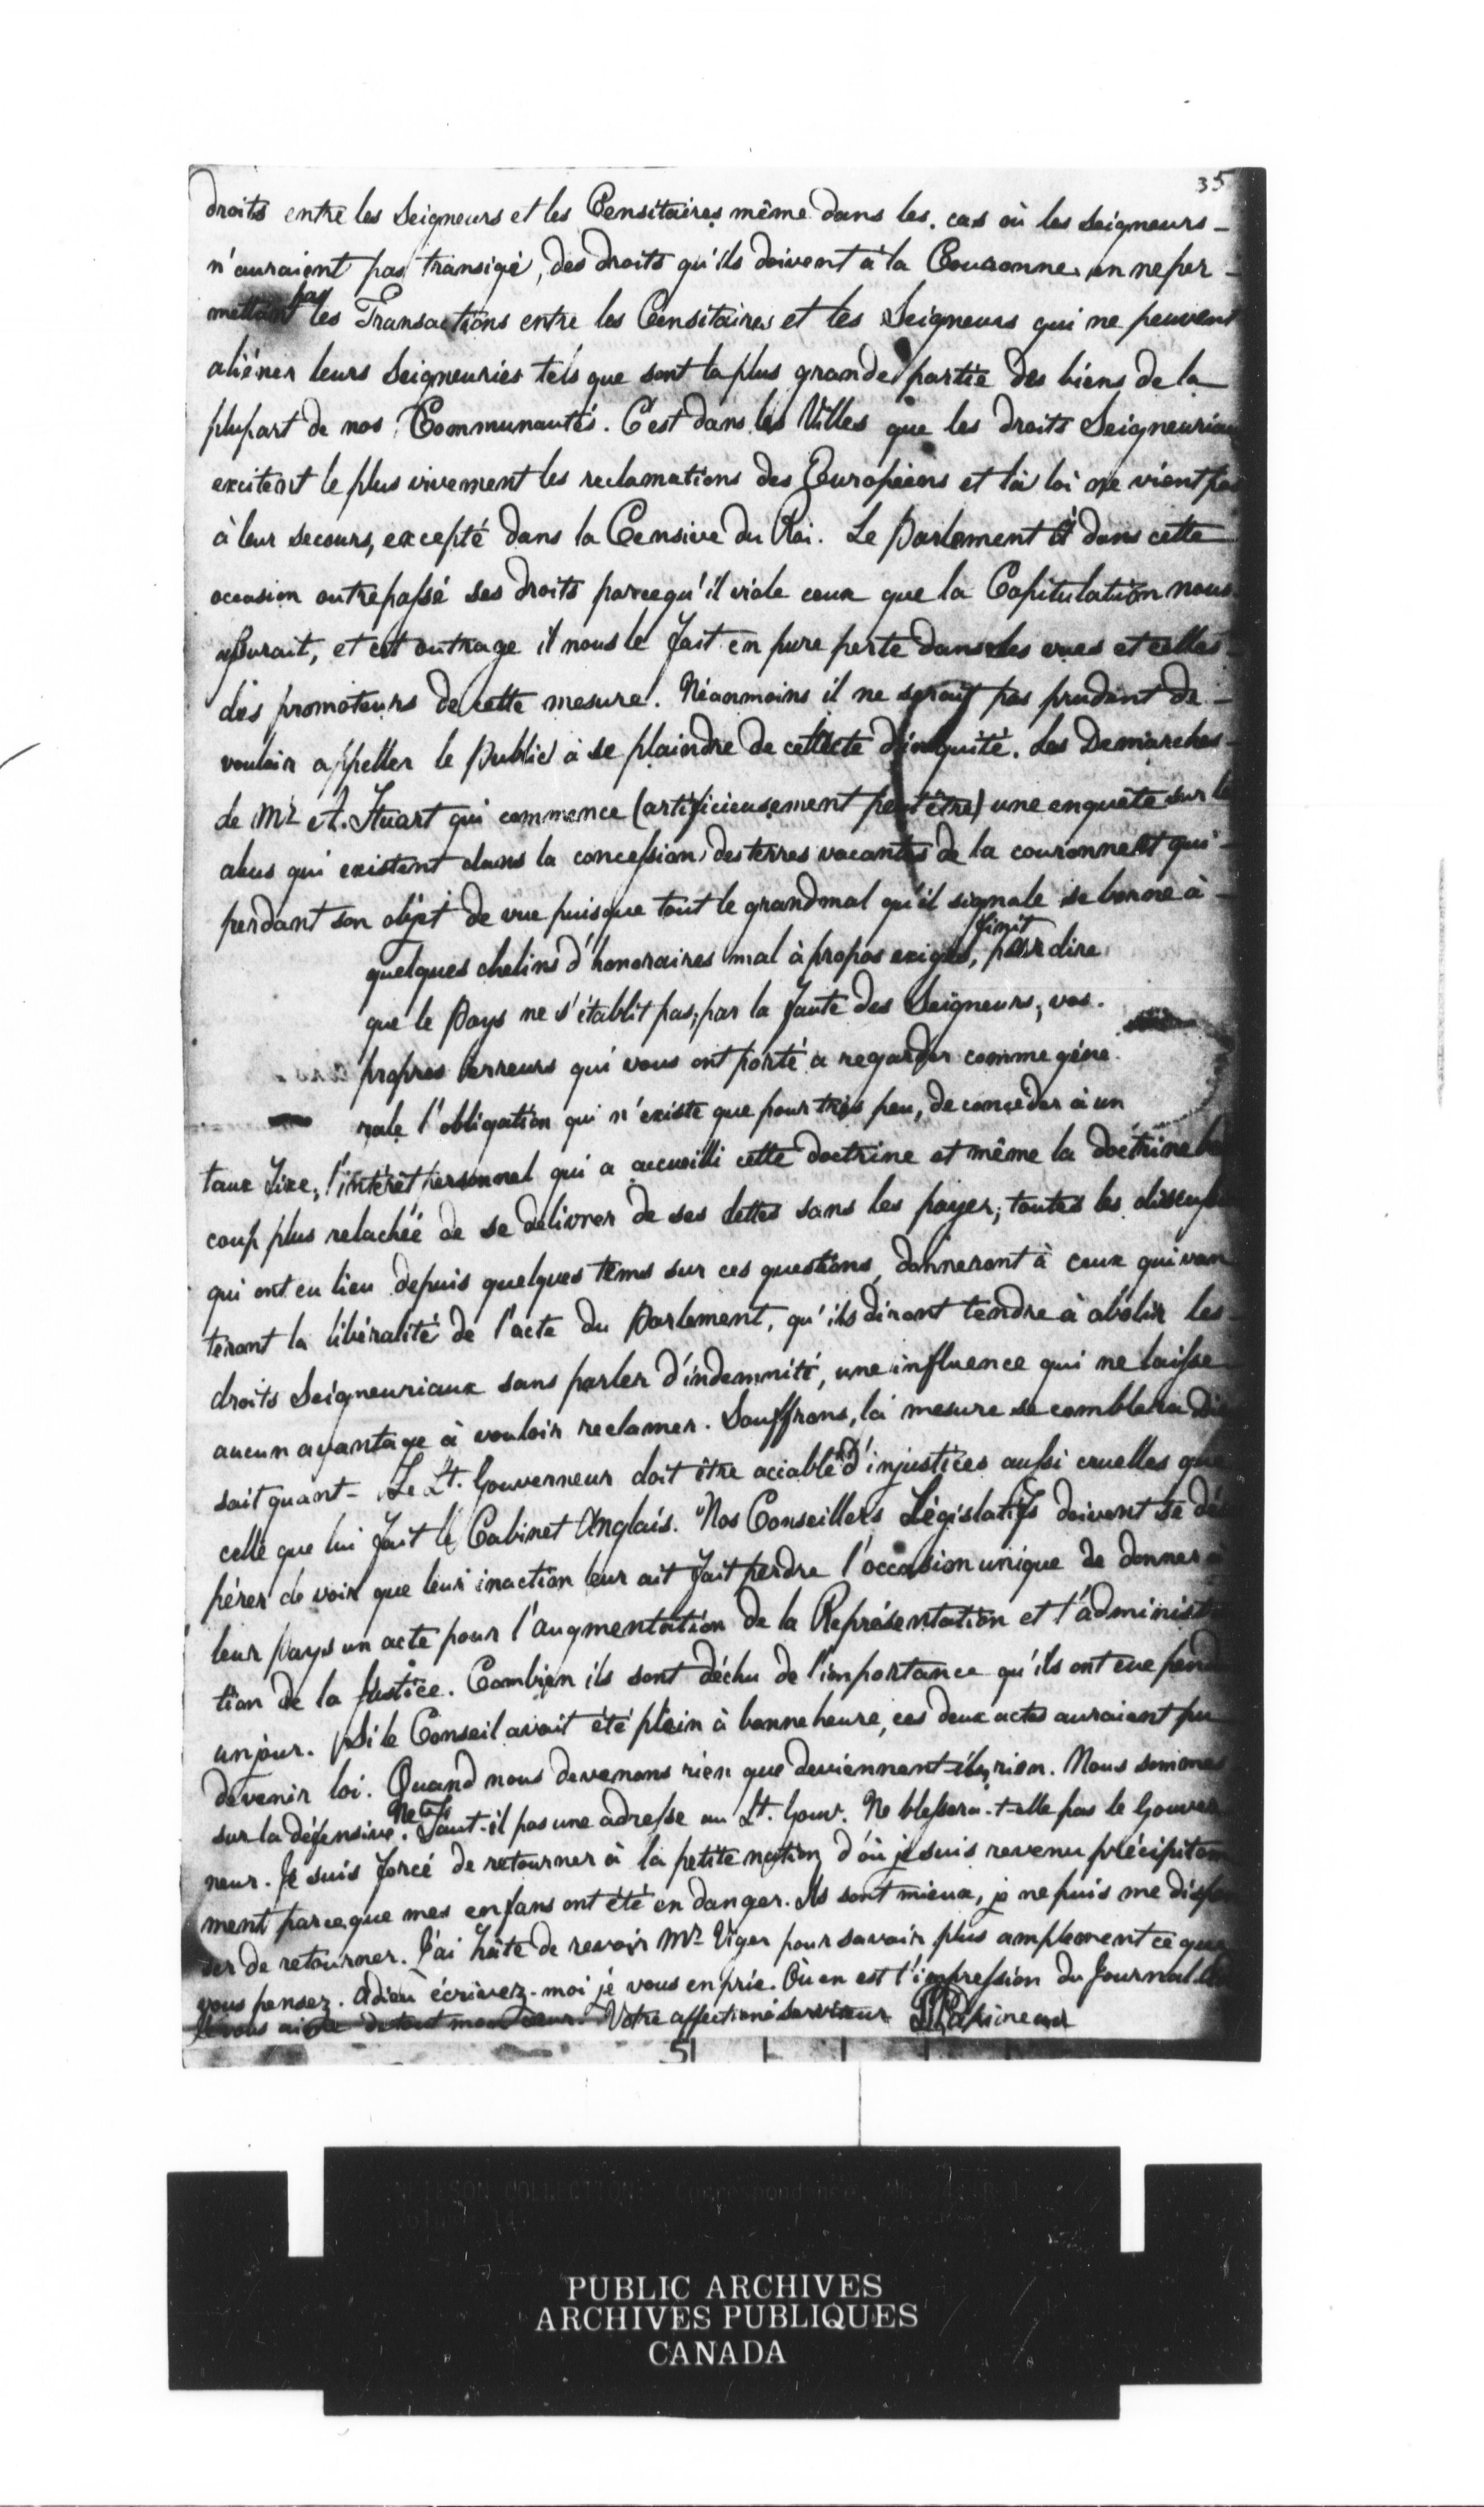 35
droits entre les Seigneurs et les Censitaires même dans les cas où les Seigneurs
n'auraient pas transigé, des droits qu'ils doivent à la Couronne en ne per-
mettant pas les Transactions entre les Censitaires et les Seigneurs qui ne peuvent
aliéner leurs Seigneuries tels que sont la plus grande partie des biens de la
plupart de nos Communautés. C'est dans les Villes que les droits Seigneuriaux
excitent le plus vivement les reclamations des Européens et là loi ne vient pas
à leur secours, excepté dans la Censive du Roi. Le Parlement a dans cette
occasion outrepassé ses droits parcequ'il viole ceux que la Capitulation nous
assurait, et cet outrage il nous le fait en pure perte dans les vues et celles
des promoteurs de cette mesure. Néanmoins il ne serait pas prudent de
vouloir appeller le Public à se plaindre de cet acte d'iniquité. Les Demarches
de Mr A. Stuart qui commence (artificieusement peut être) une enquête sur les
abus qui existent dans la concession des terres vacantes de la couronne et qui
perdant son objet de vue puisque tout le grand mal qu'il signale se borne à
quelques chelins d'honoraires mal à propos exigés, finit par dire
que le Pays ne s'établit pas, par la faute des Seigneurs, vos
propres erreurs qui vous ont porté a regarder comme géné
rale l'obligation qui n'existe que pour très peu, de conceder à un
taux fixe, l'intérêt personnel qui a accueilli cette doctrine et même la doctrine beau
coup plus relachée de se delivrer de ses dettes sans les payer; toutes les discussions
qui ont eu lieu depuis quelques tems sur ces questions, donneront à ceux qui van
teront la libéralité de l'acte du Parlement, qu'ils diront tendre à abolir les
droits Seigneuriaux sans parler d'indemnité, une influence qui ne laisse
aucun avantage à vouloir reclamer. Souffrons, la mesure se comblera Dieu
sait quant - Le Lt. Gouverneur doit être accablé d'injustices aussi cruelles que
celle que lui fait le Cabinet Anglais. Nos Conseillers Législatifs doivent se dés
pérer de voir que leur inaction leur ait fait perdre l'occasion unique de donner à
leur Pays un acte pour l'augmentation de la Représentation et l'administra
tion de la Justice. Combien ils sont déchu de l'importance qu'ils ont eue pendant
un jour. Si le Conseil avait été plein à bonne heure, ces deux actes auraient pu
devenir loi. Quand nous devenons rien que deviennent-ils, rien. Nous sommes
sur la défensive. Ne faut-il pas une adresse au Lt. Gouv. Ne blessera-t-elle pas le Gouver
neur. Je suis forcé de retourner à la petite nation d'où je suis revenu précipitam
ment parceque mes enfans ont été en danger. Ils sont mieux, je ne puis me dispen
ser de retourner. J'ai hâte de revoir Mr Viger pour savoir plus amplement ce que
vous pensez. Adieu écrivez-moi je vous en prie. Où en est l'impression du Journal
Je vous aime de tout mon cœur. Votre affectioné serviteur LJ Papineau
5
PUBLIC ARCHIVES
ARCHIVES PUBLIQUES
CANADA